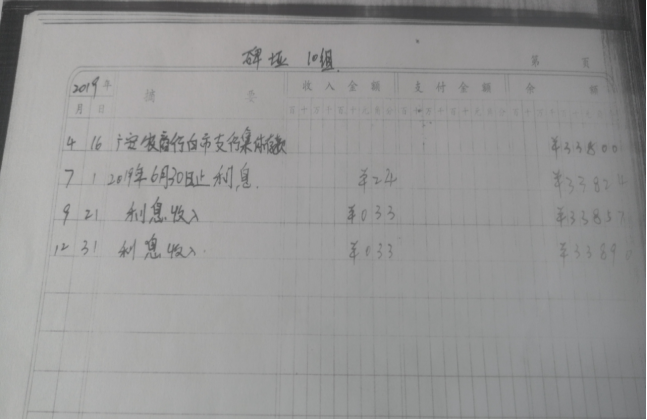 碑垭 10组
第 页
2019年 摘 要 收入金额 支付金额 余 额
月 日
4 16 广安农商行白市支行集体存款 ¥33800
7 1 2019年6月30日止利息 ¥24 ¥33824
9 21 利息收入 ¥033 ¥33857
12 31 利息收入 ¥033 ¥3389